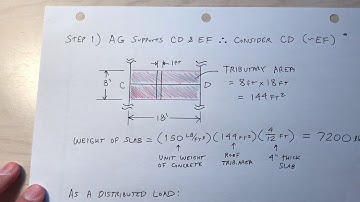 STEP 1) AG SUPPORTS CD & EF ∴ CONSIDER CD (~EF)
1FT
TRIBUTARY AREA
8'
C
D
= 8FT x 18FT
= 144FT²
18'
WEIGHT OF SLAB = (150 LB/FT³)(144FT²)(4/12 FT) = 7200
UNIT WEIGHT OF CONCRETE
ROOF TRIB. AREA
4" THICK SLAB
AS A DISTRIBUTED LOAD: